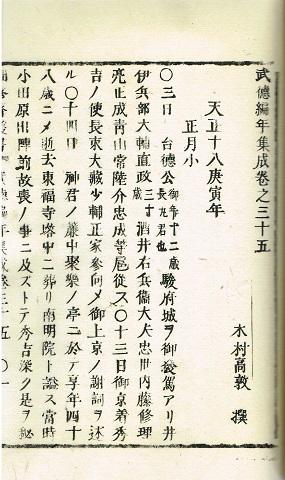 武德編年集成卷之三十五
木村高敦 撰
天正十八庚寅年
正月小
〇三日 台德公 御年十二歳 長丸君也 駿府城ヲ御發駕アリ井
伊兵部大輔直政 三十歳 酒井右兵衞大夫忠世内藤修理
亮正成青山常陸介忠成等扈從ス〇十三日御京着秀
吉ノ使長束大藏少輔正家參向メ御上京ノ謝詞ヲ述
ル〇十四日 神君ノ簾中聚樂ノ亭ニ於テ享年四十
八歳ニメ逝去東福寺塔中ニ葬リ南明院ト諡ス當時
小田原出陣前故喪ノ事ニ及ズトテ秀吉深ク是ヲ秘